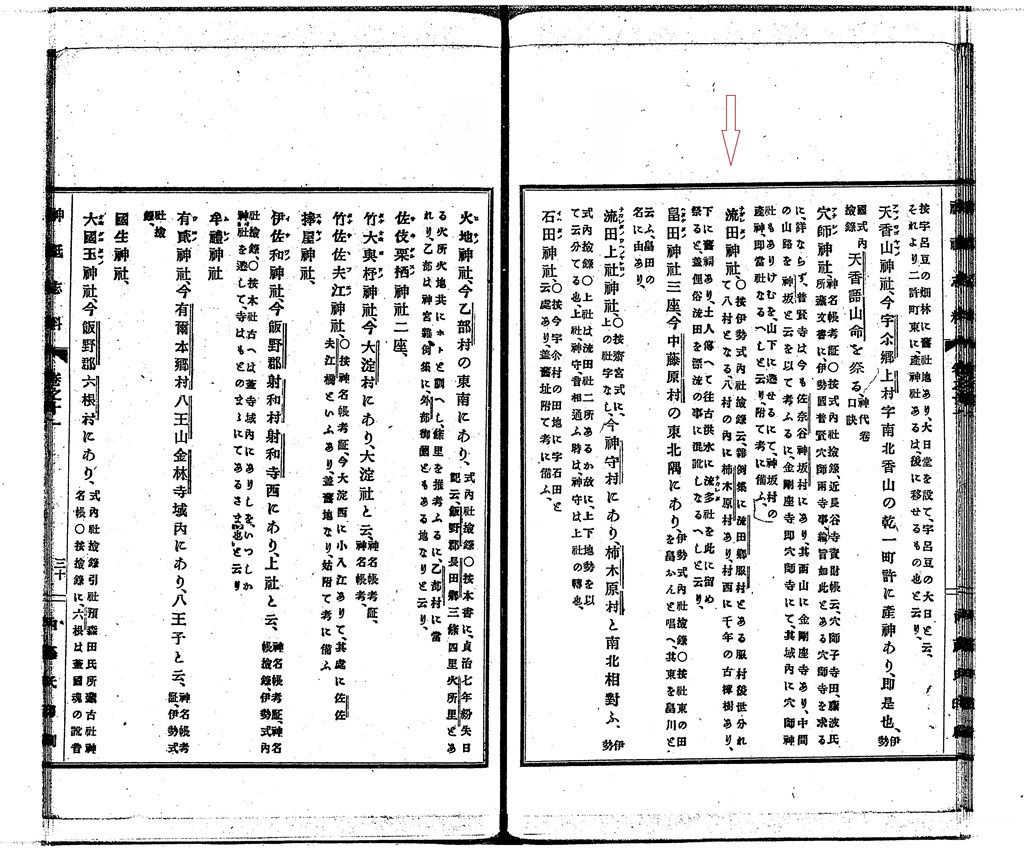 按宇呂豆の畑林に舊社地あり、大日堂を設て、宇呂豆の大日と云、
それより二許町東に、產神社あるは、後に移せるもの也と云り、
天香山神社、今字佘鄕上村字南北香山の乾一町許に產神あり、即是也、伊勢
國式內撿錄 天香語山命を祭る、神代卷口訣
穴師神社、神名帳考証〇按式內社撿錄近長谷寺資財帳云、穴師子寺田、藤波氏
所藏文書に、伊勢國普賢穴師兩寺事、綸旨如此とある穴師寺を求る
に、詳ならず、普賢寺は今も佐奈谷神坂村にあり、其西山に金剛座寺あり、中間
の山路を神坂と云を以て考ふるに、金剛座寺即穴師寺にて、其域內に穴師神
社もありけむを、山下に遷せるにて、神坂村の
產神、即當社なるへしと云り、附て考に備ふ、
流田神社、〇按伊勢式內社撿錄云、雜例集に流田鄕服村とある服村後世分れ
て八村となる、八村の內に柿木原あり、村西に千年の古樟樹あり、
下に舊祠あり、土人傳へて往古洪水に流多社を此に留め
祭ると、蓋俚俗流田を漂流の事に混訛しなるへしと云り、
畠田神社三座、今中藤原村の東北隅にあり、伊勢式內社撿錄〇按社東の田
を畠かんと唱へ、其東を畠川と
云ふ、畠田の
名に由あり、
流田上社神社、〇按齋宮式に、
上の社字なし、今神守村にあり、柿木原村と南北相對ふ、伊勢
式內撿錄〇上社は流田社二所あるか故に、上下地勢を以
て云分てる也、上社、神守、音相通ふ時は、神守は上社の轉也、
石田神社〇按今字佘村の田地に字石田と
云處あり、蓋舊址附て考に備ふ、
火地神社、今乙部村の東南にあり、式內社撿錄〇按本書に、貞治七年紛失日
記云、飯野郡長田鄕三條四里火所里とあ
る火所火地共にホトと訓へし、條里を推考ふるに、乙部村に當
れり、乙部は神宮雜例集に外部御薗ともある地なりと云り、
佐伎栗栖神社二座、
竹大與杼神社、今大淀村にあり、大淀社と云、神名帳考証、
神名帳考、
竹佐佐夫江神社、〇按神名帳考証、今大淀西に小入江ありて、其處に佐佐
夫江橋といふあり、蓋舊地なり、姑附て考に備ふ
捧屋神社、
伊佐和神社、今飯野郡射和村射和寺西にあり、上社と云、神名帳考証、神名
帳撿錄、伊勢式內
社撿錄、〇按本社古へは蓋寺域內にありしを、いつしか
神社を遷して寺はもとのまゝにてあるさま也と云り
牟禮神社
有貳神社、今有爾本鄕村八王山金林寺域內にあり、八王子と云、神名帳考
証、伊勢式
社撿
錄、
國生神社、
大國玉神社、今飯野郡六根村にあり、式內社撿錄引社預森田氏所藏古社神
名帳〇按撿錄に、六根は蓋國魂の訛音
神祇志料
卷之十一
三十